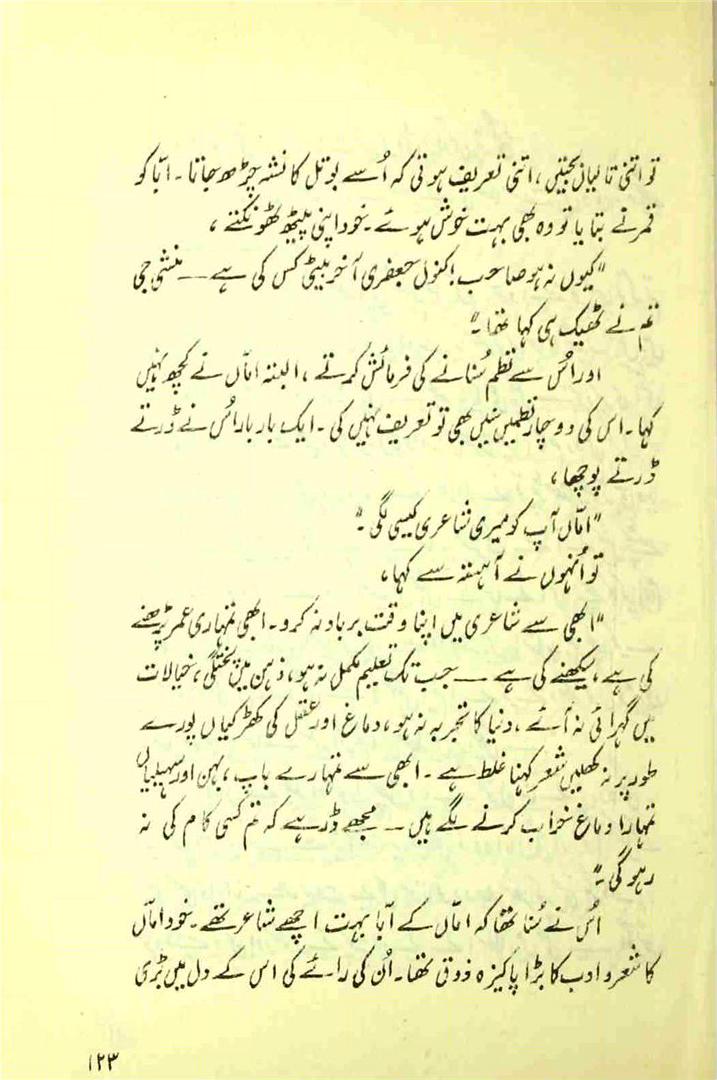 تو اتنی تالیاں بجتیں، اتنی تعریف ہوتی کہ اُسے بوتل کا نشہ چڑھ جاتا۔ ابّا کو
قمر نے بتایا تو وہ بھی بہت خوش ہوئے۔ خود اپنی پیٹھ ٹھونکتے،
"کیوں نہ ہو صاحب! کنول جعفری آخر بیٹی کس کی ہے ــــ منشی جی
تم نے ٹھیک ہی کہا تھا۔"
اور اُس سے نظم سُنانے کی فرمائش کرتے، البتہ امّاں نے کچھ نہیں
کہا۔ اس کی دو چار نظمیں سنیں بھی تو تعریف نہیں کی۔ ایک بار بار اُس نے ڈرتے
ڈرتے پوچھا،
"امّاں آپ کو میری شاعری کیسی لگی۔"
تو اُنہوں نے آہستہ سے کہا،
"ابھی سے شاعری میں اپنا وقت برباد نہ کرو۔ ابھی تمہاری عمر پڑھنے
کی ہے، سیکھنے کی ہے ــــ جب تک تعلیم مکمل نہ ہو، ذہن میں پختگی، خیالات
میں گہرائی نہ آئے، دنیا کا تجربہ نہ ہو، دماغ اور عقل کی کھڑکیاں پورے
طور پر نہ کھلیں شعر کہنا غلط ہے۔ ابھی سے تمہارے باپ، بہن اور سہیلیاں
تمہارا دماغ خراب کرنے لگے ہیں ــ مجھے ڈر ہے کہ تم کسی کام کی نہ
رہو گی۔"
اُس نے سُنا تھا کہ امّاں کے ابّا بہت اچھے شاعر تھے۔ خود امّاں
کا شعر و ادب کا بڑا پاکیزہ ذوق تھا۔ اُن کی رائے کی اس کے دل میں بڑی
۱۲۳